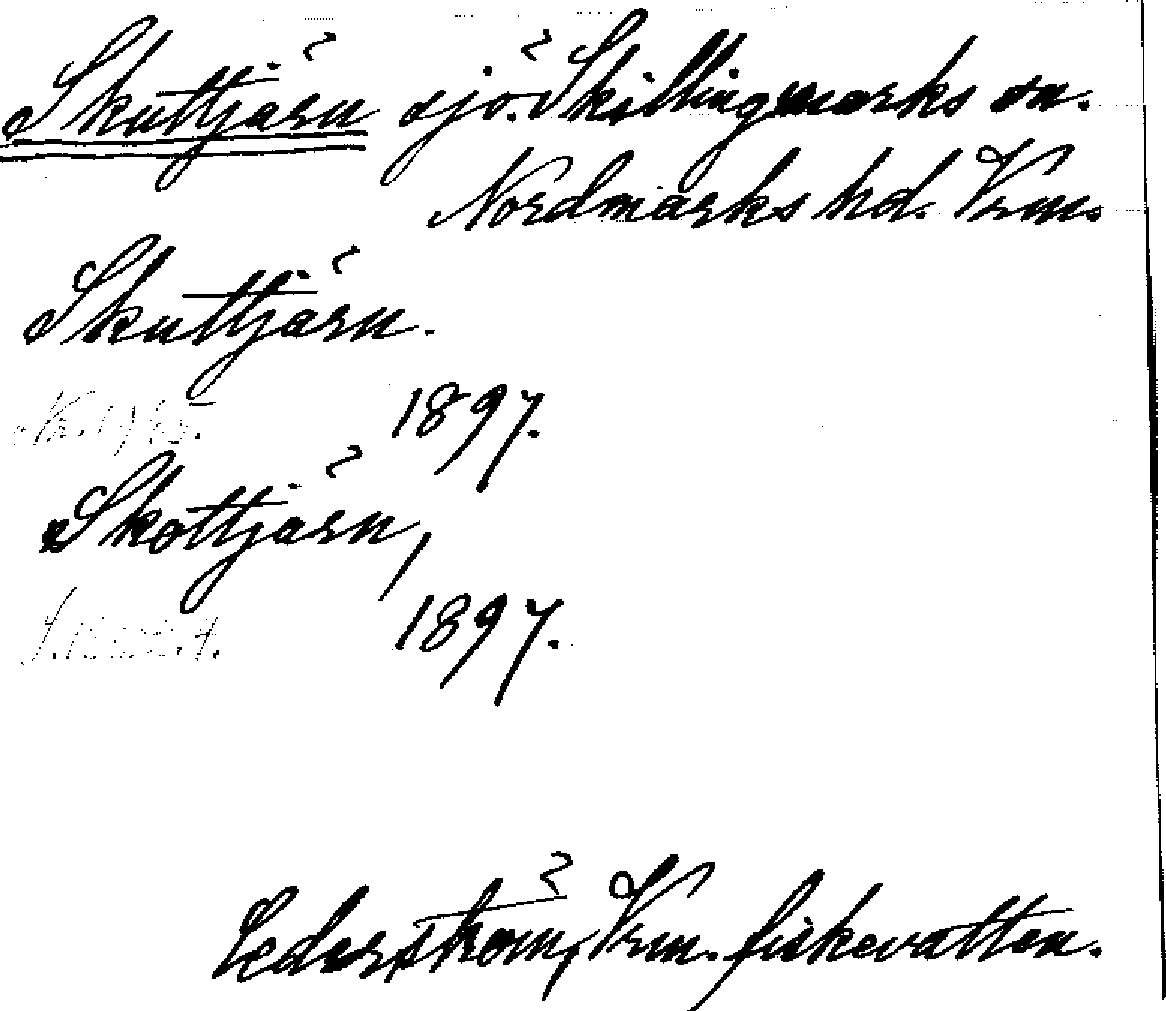 Skuttjärn sjö. Skillingmarks sn.
Nordmarks hd. Vrm.
Skuttjärn.
1897.
Skottjärn,
1897.
Cederström, Vrm. fiskevatten.